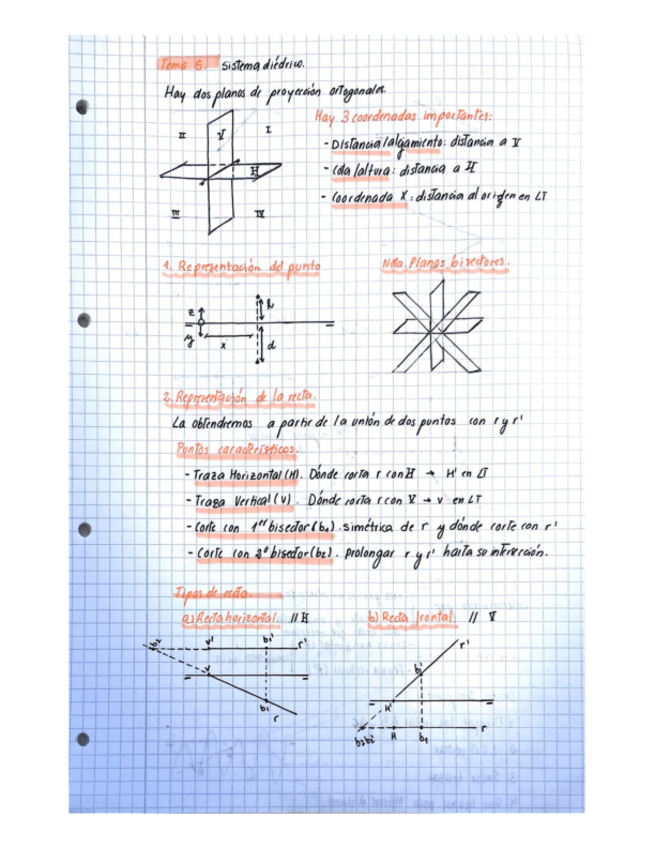 Tema 6. Sistema diédrico.
Hay dos planos de proyección ortogonales.
Hay 3 coordenadas importantes:
II V I
H
III IV
- Distancia/algamiento: distancia a V
- Cota/altura: distancia a H
- Coordenada X: distancia al origen en LT
1. Representación del punto
Nota. Planos bisectores.
z h
y x d
2. Representación de la recta.
La obtendremos a partir de la unión de dos puntos con r y r'
Puntos característicos.
- Traza Horizontal (H). Dónde corta r con H → H' en LT
- Traza Vertical (V). Dónde corta r con V → v en LT
- Corte con 1er bisector (b1). simétrica de r y dónde corte con r'
- Corte con 2º bisector (b2). prolongar r y r' hasta su intersección.
Tipos de recta.
a) Recta horizontal. // H
b) Recta frontal. // V
b2 v' b1' r'
v
b1 r
r'
b1'
H'
b2 b2' H b1 r